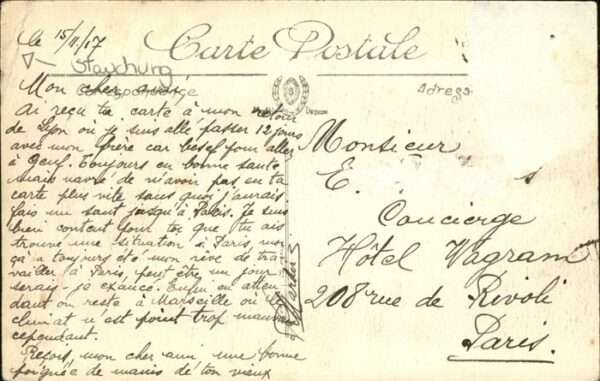 le 15/11/17
Carte Postale
Mon cher ami,
Correspondance
Adresse
Ai reçu ta carte à mon retour
de Lyon où je suis allé passer 12 jours
avec mon frère car pour aller
à Toujours en bonne santé
mais navré de n'avoir pas eu ta
carte plus vite sans quoi j'aurais
fais un saut jusqu'à Paris. Je suis
bien content pour toi que tu ais
trouvé une situation à Paris, moi
ça a toujours été mon rêve de tra-
vailler à Paris, peut être un jour
serais-je exaucé. Enfin en atten-
dant on reste à Marseille où le
climat n'est point trop mauvais
cependant.
Reçois, mon cher ami une bonne
poignée de mains de ton vieux
Monsieur
E. s
Concierge
Hôtel Wagram
208 rue de Rivoli
Paris.